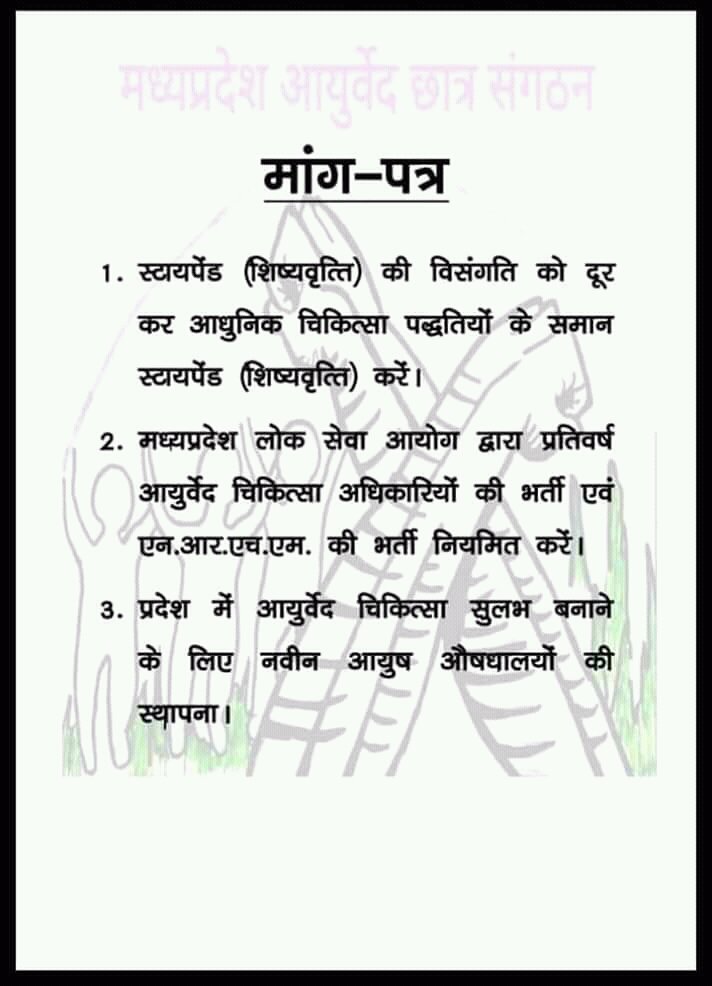 मध्यप्रदेश आयुर्वेद छात्र संगठन
मांग-पत्र
1. स्टायपेंड (शिष्यवृत्ति) की विसंगति को दूर
कर आधुनिक चिकित्सा पद्धतियों के समान
स्टायपेंड (शिष्यवृत्ति) करें।
2. मध्यप्रदेश लोक सेवा आयोग द्वारा प्रतिवर्ष
आयुर्वेद चिकित्सा अधिकारियों की भर्ती एवं
एन.आर.एच.एम. की भर्ती नियमित करें।
3. प्रदेश में आयुर्वेद चिकित्सा सुलभ बनाने
के लिए नवीन आयुष औषधालयों की
स्थापना।